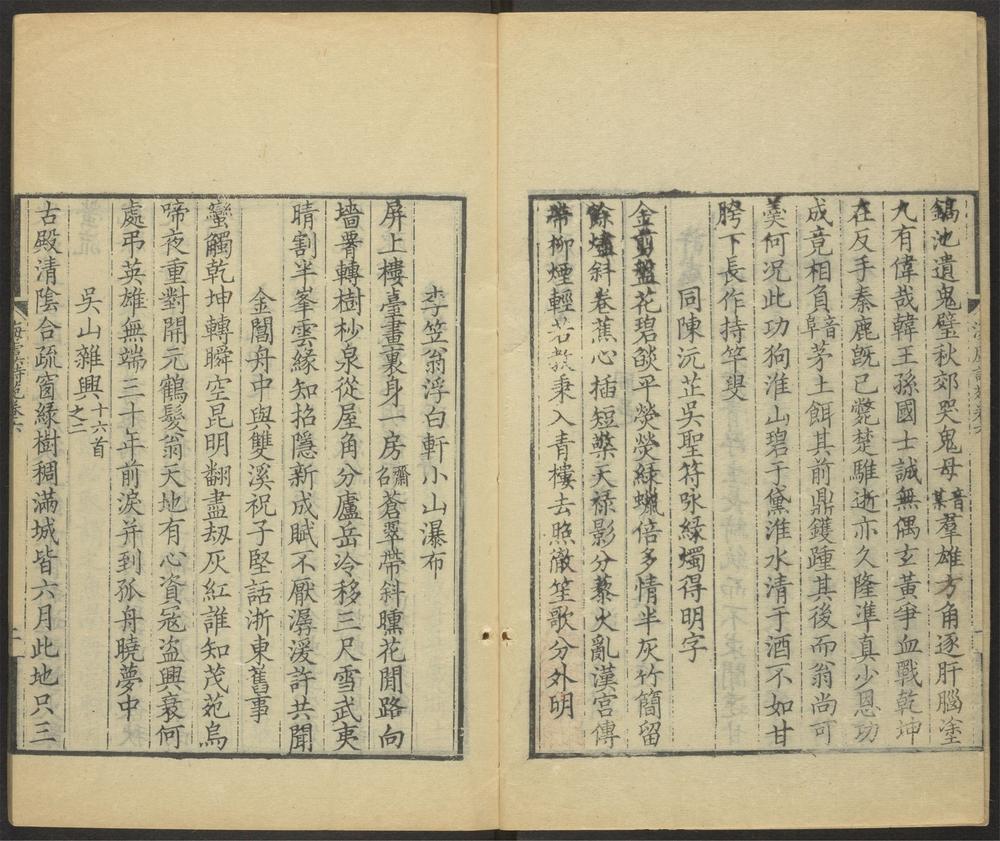 鎬池遺鬼璧秋郊哭鬼母音某羣雄方角逐肝腦塗
九有偉哉韓王孫國士誠無偶玄黃爭血戰乾坤
在反手秦鹿旣已斃楚騅逝亦久隆準真少恩功
成竟相負音阜茅土餌其前鼎鑊踵其後而翁尚可
羹何况此功狗淮山碧于黛淮水清于酒不如甘
胯下長作持竿叟
同陳沅芷吳聖符咏緑燭得明字
金剪盤花碧燄平熒熒緑蠟倍多情半灰竹簡留
餘燼斜卷蕉心插短檠天禄影分藜火亂漢宫傳
帶柳煙輕若教秉入青樓去照徹笙歌分外明
李笠翁浮白軒小山瀑布
屏上樓臺畫裏身一房名齋蒼翠帶斜曛花閒路向
墻隈轉樹杪泉從屋角分廬岳冷移三尺雪武夷
晴割半峯雲緣知招隱新成賦不厭潺湲許共聞
金閶舟中與雙溪祝子堅話浙東舊事
蠻觸乾坤轉瞬空昆明翻盡刼灰紅誰知茂苑烏
啼夜重對開元鶴髮翁天地有心資冦盗興衰何
處弔英雄無端三十年前淚并到孤舟曉夢中
吳山雜興十六首之二
古殿清陰合疏窗緑樹稠滿城皆六月此地只三